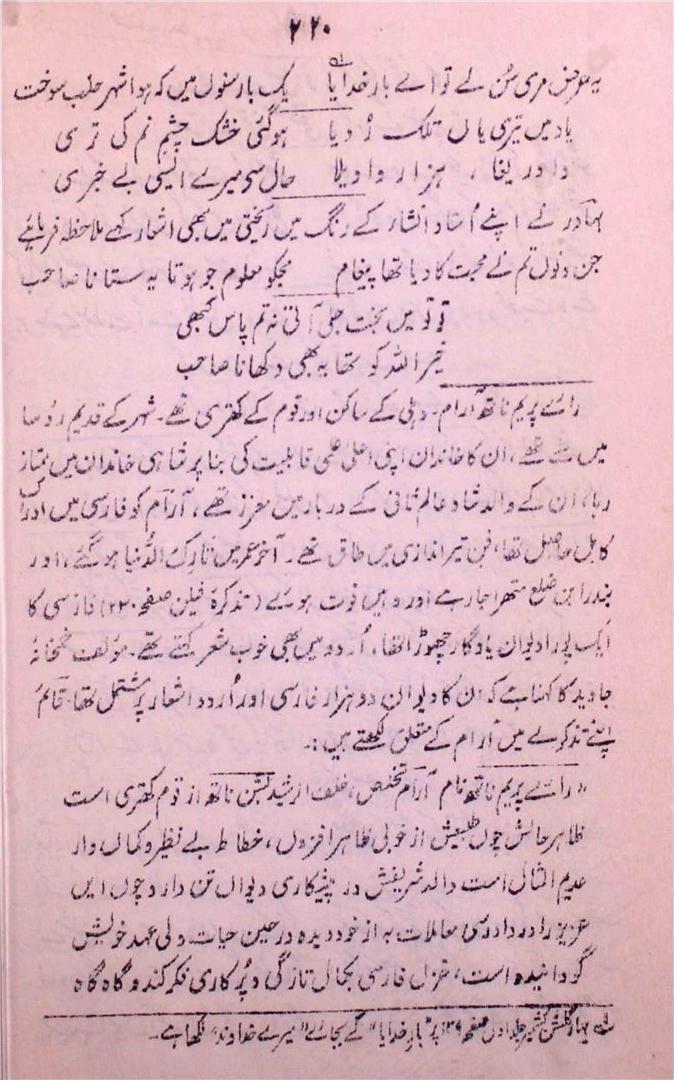 ۲۲۰
یہ عرض مری سن لے تو اے بار خدایا یک بار سنوں میں کہ ہوا شہر حلب سوخت
یاد میں تیری یاں تلک رُدیا ہوگئی خشک چشمِ نم کی تری
دادریغا، ہزار واویلا حال سی میرے ایسی بے خبری
بہادر نے اپنے اُستاد انشار کے رنگ میں ریختی میں بھی اشعار کہے ملاحظہ فرمایئے
جن دنوں تم نے محبت کا دیا تھا پیغام مجکو معلوم جو ہوتا یہ ستانا صاحب
تو تو میں بخت جلی آتی نہ تم پاس کبھی
خیر اللہ کو تھا یہ بھی دکھانا صاحب
رائے پریم ناتھ آرام۔ دہلی کے ساکن اور قوم کے کھتری تھے۔ شہر کے قدیم رؤسا
میں سے تھے، ان کا خاندان اپنی اعلیٰ علمی قابلیت کی بنا پر شاہی خاندان میں ممتاز
رہا، ان کے والد شاہ عالم ثانی کے دربار میں معزز تھے، آرام کو فارسی میں ادراک
کامل حاصل تھا، فن تیر اندازی میں طاق تھے۔ آخر عمر میں تارک الدُّنیا ہوگئے، اور
بندرابن ضلع متھرا جارہے اور وہیں فوت ہوئے (تذکرۂ فیلن صفحہ ۲۳۰) فارسی کا
ایک پورا دیوان یادگار چھوڑا تھا، اُردو میں بھی خوب شعر کہتے تھے۔ مؤلف خمخانۂ
جاوید کا کہنا ہے کہ ان کا دیوان دو ہزار فارسی اور اُردو اشعار پر مشتمل تھا۔ قائم
اپنے تذکرے میں آرام کے متعلق لکھتے ہیں:۔
"رائے پریم ناتھ نام آرام تخلص، خلف الرشید لبشن ناتھ از قوم کھتری است
ظاہر حالش چوں طبعیش از خوبی ظاہر افزوں، خطاط بے نظیر و کماں دار
عدیم المثال است والد شریفش در پیشکاری دیوان تن دارد چوں ایں
عزیز را در دادرسی معاملات بہ از خود دیدہ در عین حیات ولی عہد خویش
گردانیدہ است، غزل فارسی بکمال تازگی و پُرکاری فکر کند و گاہ گاہ
لہ بہار گلشن کشمیر جلد اول صفحہ ۱۳۹ پر "بار خدایا" کے بجائے "میرے خداوند" لکھا ہے۔